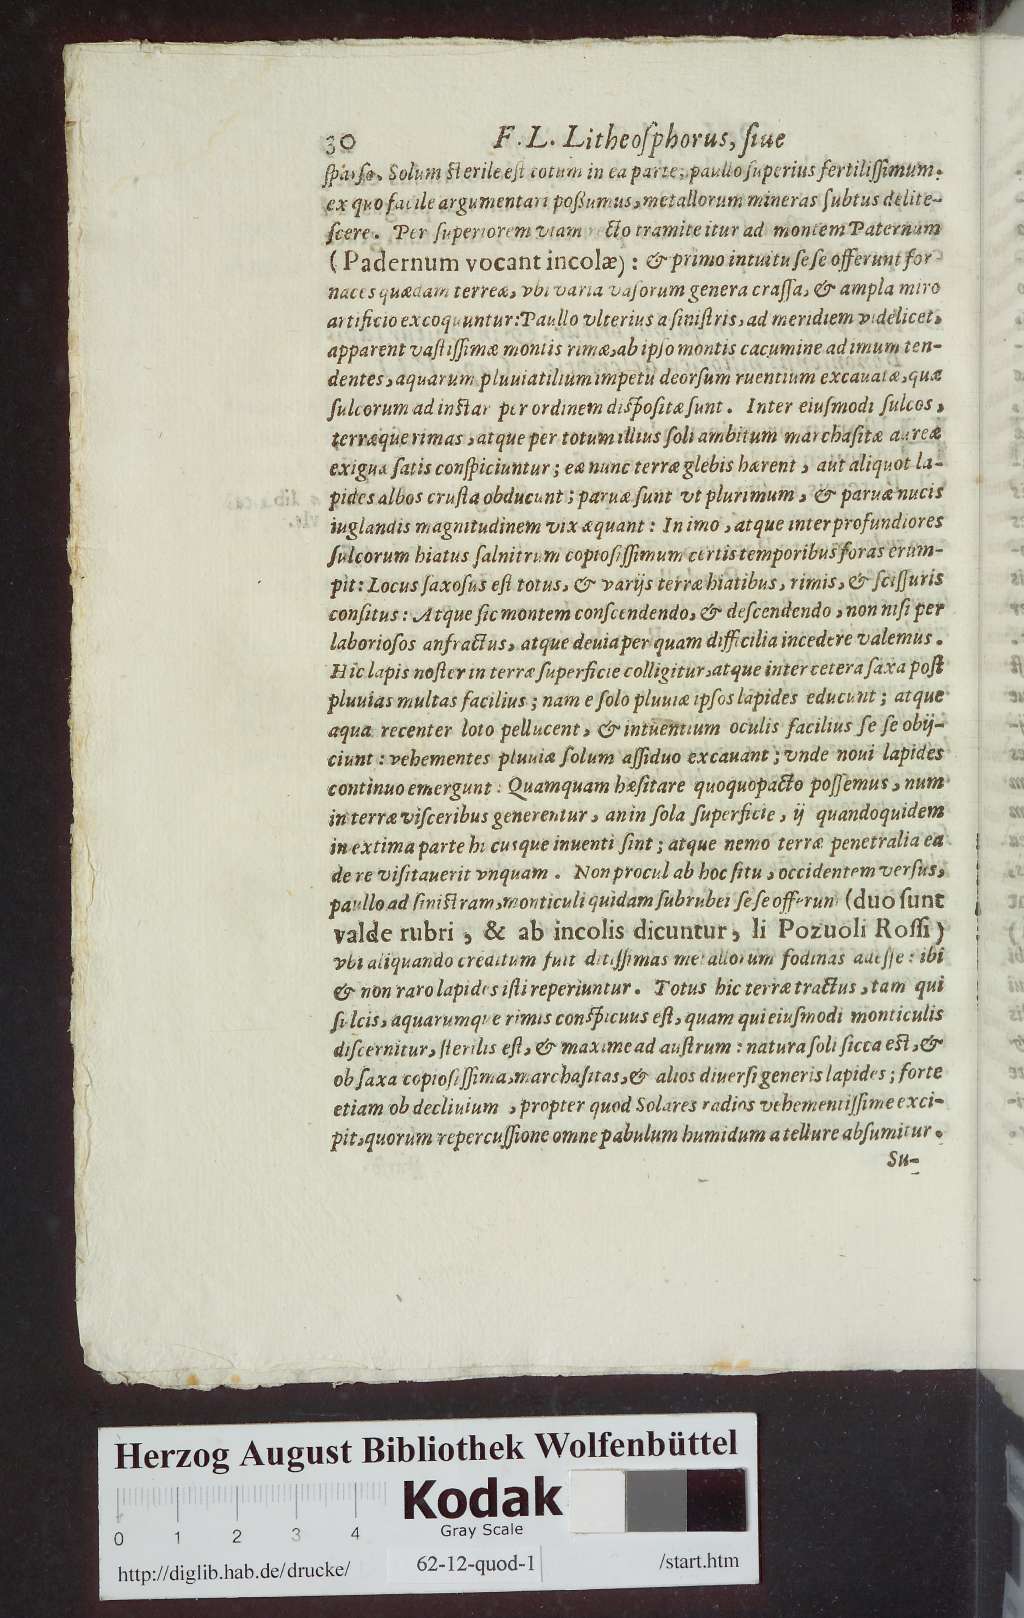 30 F. L. Litheoſphorus, ſiue
ſparſo. Solum ſterile eſt totum in ea parte; paullo ſuperius fertiliſſimum.
ex quo facile argumentari poßumus, metallorum mineras ſubtus delite-
ſcere. Per ſuperiorem viam recto tramite itur ad montem Paternum
(Padernum vocant incolæ): & primo intuitu ſe ſe offerunt for-
naces quædam terreæ, vbi varia vaſorum genera craſſa, & ampla miro
artificio excoquuntur: Paullo vlterius a ſiniſtris, ad meridiem videlicet,
apparent vaſtiſſimæ montis rimæ, ab ipſo montis cacumine ad imum ten-
dentes, aquarum pluuiatilium impetu deorſum ruentium excauatæ, quæ
ſulcorum ad inſtar per ordinem diſpoſitæ ſunt. Inter eiuſmodi ſulcos,
terræque rimas, atque per totum illius ſoli ambitum marchaſitæ aureæ
exiguæ ſatis conſpiciuntur; eæ nunc terræ glebis hærent, aut aliquot la-
pides albos cruſta obducunt; paruæ ſunt vt plurimum, & paruæ nucis
iuglandis magnitudinem vix æquant: In imo, atque inter profundiores
ſulcorum hiatus ſalnitrum copioſiſſimum certis temporibus foras erum-
pit: Locus ſaxoſus eſt totus, & varijs terræ hiatibus, rimis, & ſciſſuris
conſitus: Atque ſic montem conſcendendo, & deſcendendo, non niſi per
laborioſos anfractus, atque deuia per quam difficilia incedere valemus.
Hic lapis noſter in terræ ſuperficie colligitur, atque inter cetera ſaxa poſt
pluuias multas facilius; nam e ſolo pluuiæ ipſos lapides educunt; atque
aqua recenter loto pellucent, & intuentium oculis facilius ſe ſe obij-
ciunt: vehementes pluuiæ ſolum aſſiduo excauant; vnde noui lapides
continuo emergunt. Quamquam hæſitare quoquopacto poſſemus, num
in terræ viſceribus generentur, an in ſola ſuperficie, ij quandoquidem
in extima parte hi cuſque inuenti ſint; atque nemo terræ penetralia ea
de re viſitauerit vnquam. Non procul ab hoc ſitu, occidentem verſus,
paullo ad ſiniſtram, monticuli quidam ſubrubei ſe ſe offerunt (duo ſunt
valde rubri, & ab incolis dicuntur, li Pozuoli Roſſi)
vbi aliquando creditum fuit ditiſſimas metallorum fodinas adeſſe: ibi
& non raro lapides iſti reperiuntur. Totus hic terræ tractus, tam qui
ſulcis, aquarumque rimis conſpicuus eſt, quam qui eiuſmodi monticulis
diſcernitur, ſterilis eſt, & maxime ad auſtrum: natura ſoli ſicca eſt, &
ob ſaxa copioſiſſima, marchaſitas, & alios diuerſi generis lapides; forte
etiam ob decliuium, propter quod Solares radios vehementiſſime exci-
pit, quorum repercuſſione omne pabulum humidum a tellure abſumitur.
Su-
Herzog August Bibliothek Wolfenbüttel
Kodak
Gray Scale
0 1 2 3 4
http://diglib.hab.de/drucke/ 62-12-quod-1 /start.htm